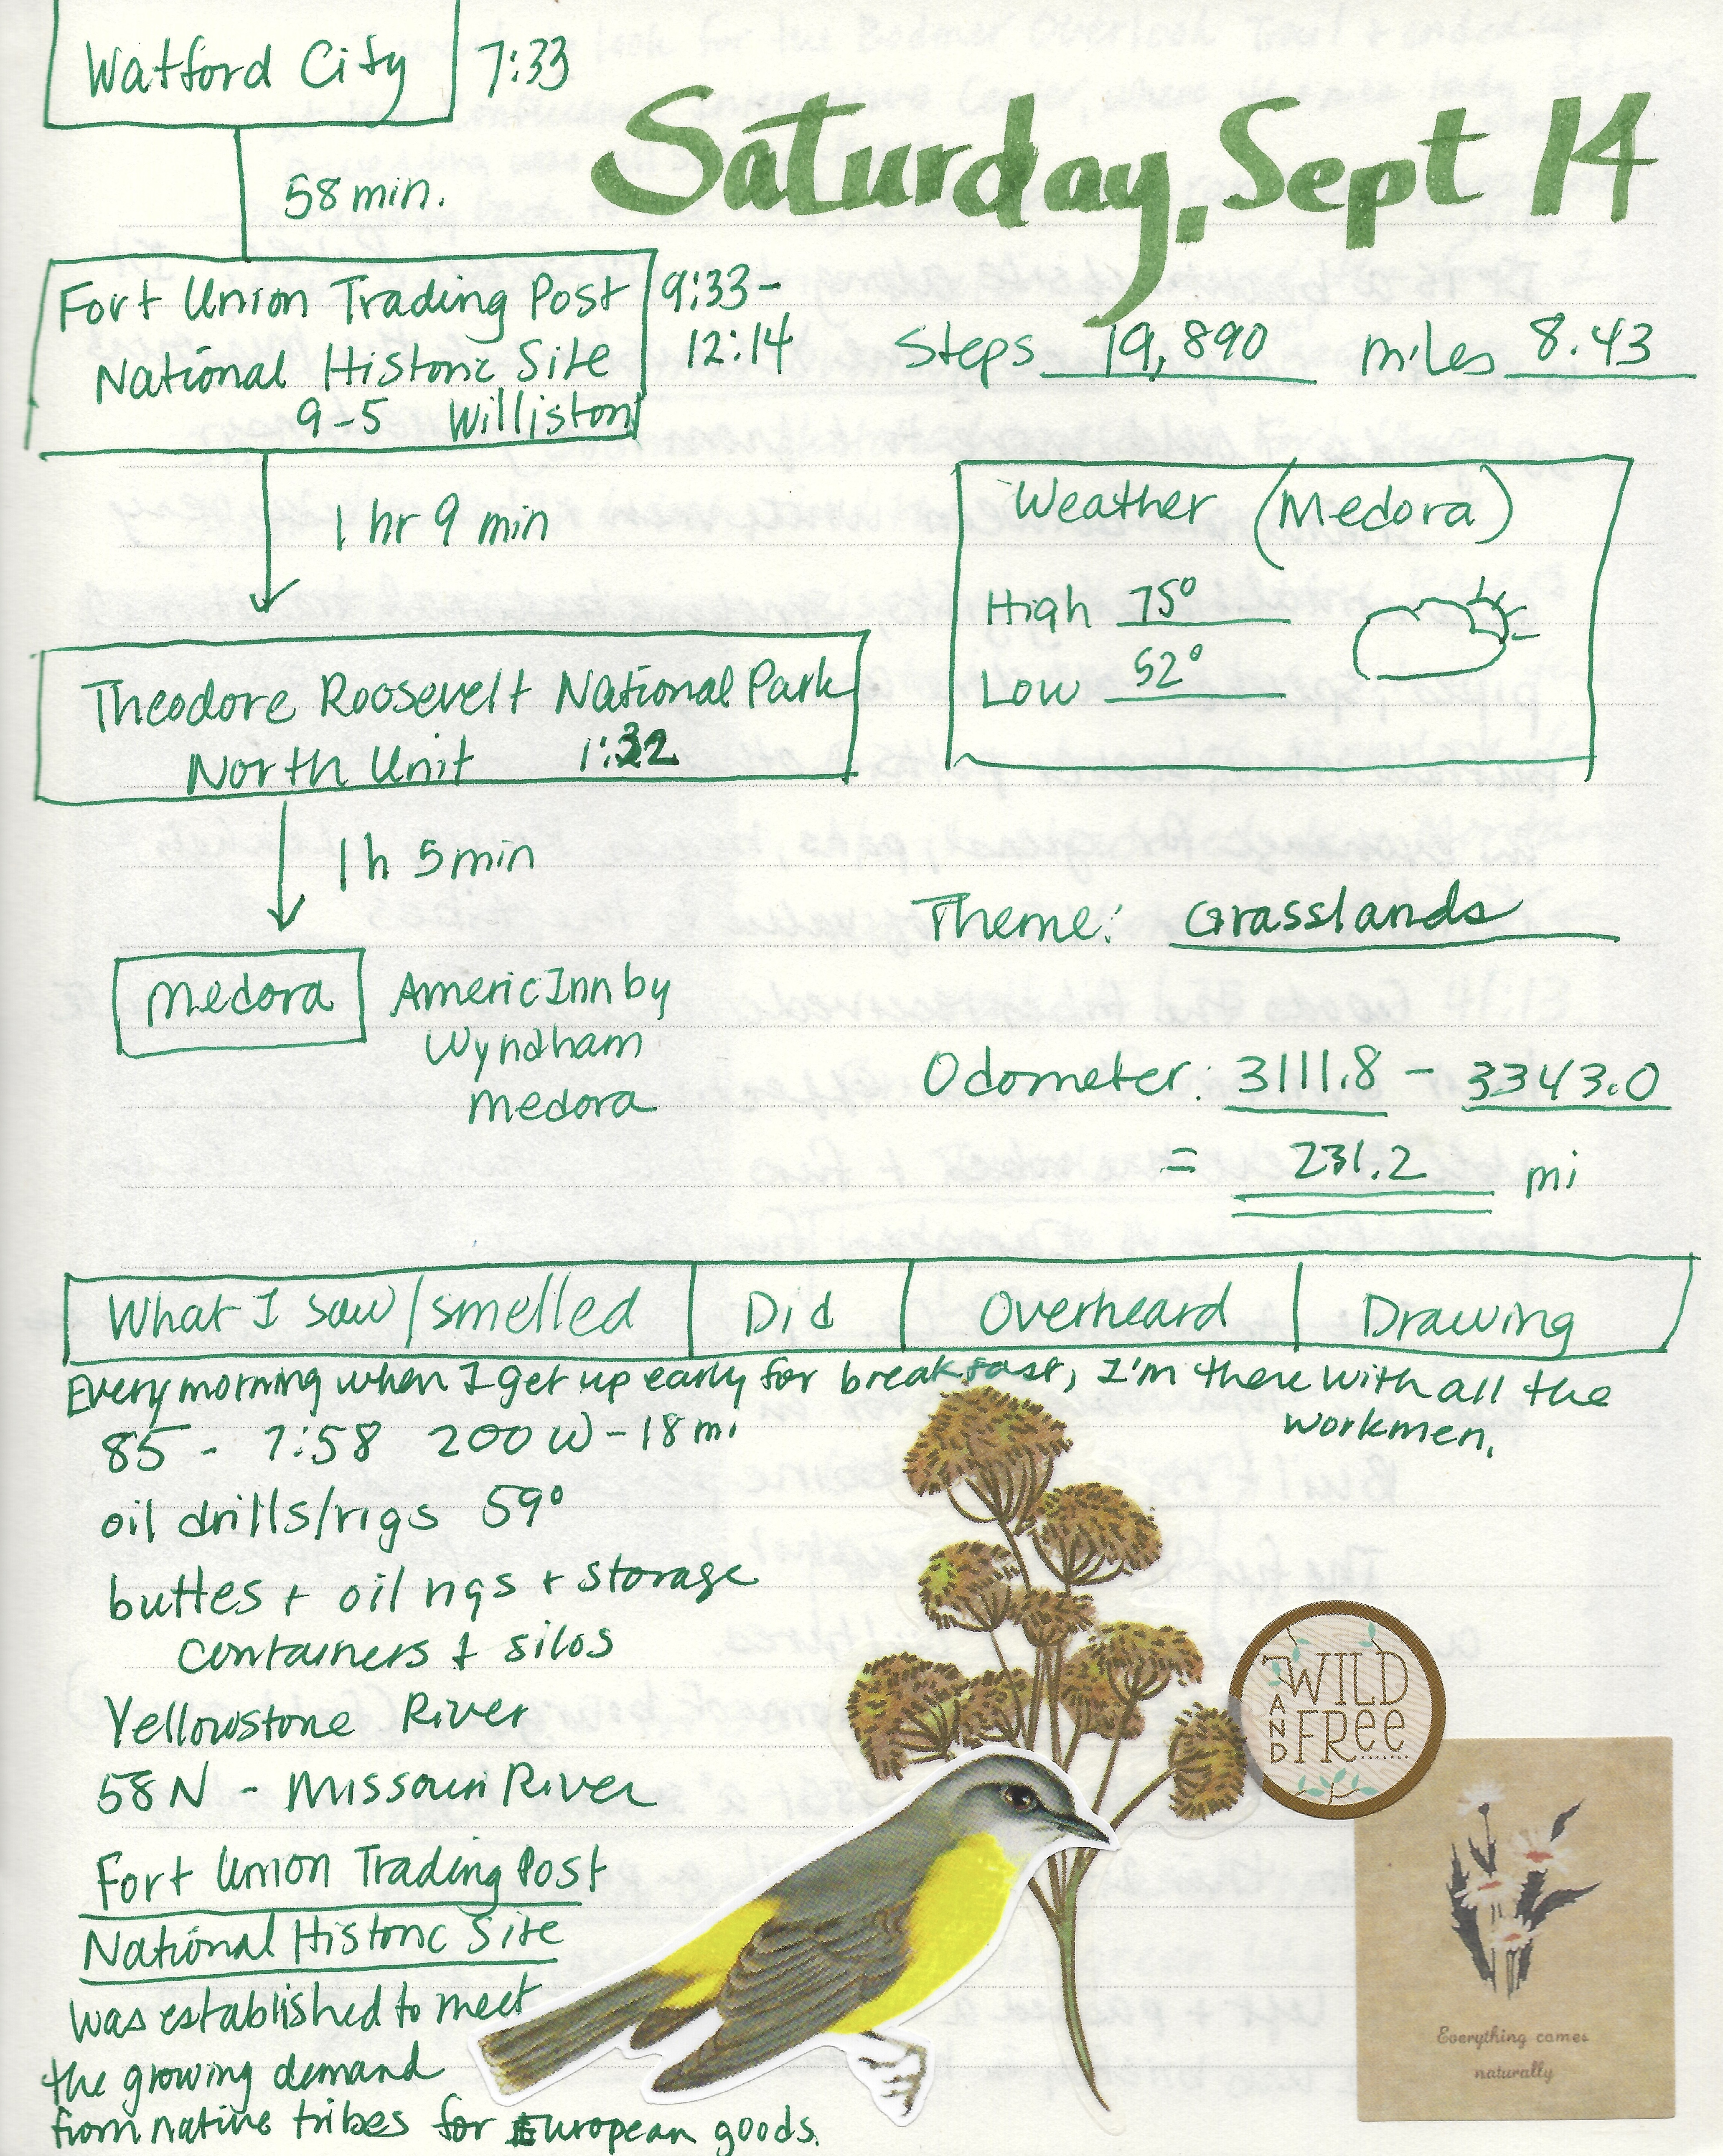 Watford City 7:33
Saturday, Sept 14
58 min.
Fort Union Trading Post 9:33-
National Historic Site 12:14
9-5 Williston
Steps 19,890 miles 8.43
1 hr 9 min
Weather (Medora)
High 75°
Low 52°
Theodore Roosevelt National Park
North Unit 1:32
1 h 5 min
Theme: Grasslands
Medora AmericInn by
Wyndham
Medora
Odometer: 3111.8 - 3343.0
= 231.2 mi
What I saw/smelled Did Overheard Drawing
Every morning when I get up early for breakfast, I'm there with all the
workmen.
85 - 7:58 200 W - 18 mi
oil drills/rigs 59°
buttes + oil rigs + storage
containers + silos
Yellowstone River
58 N - Missouri River
Fort Union Trading Post
National Historic Site
was established to meet
the growing demand
from native tribes for European goods.
WILD
AND
FREE
Everything comes
naturally